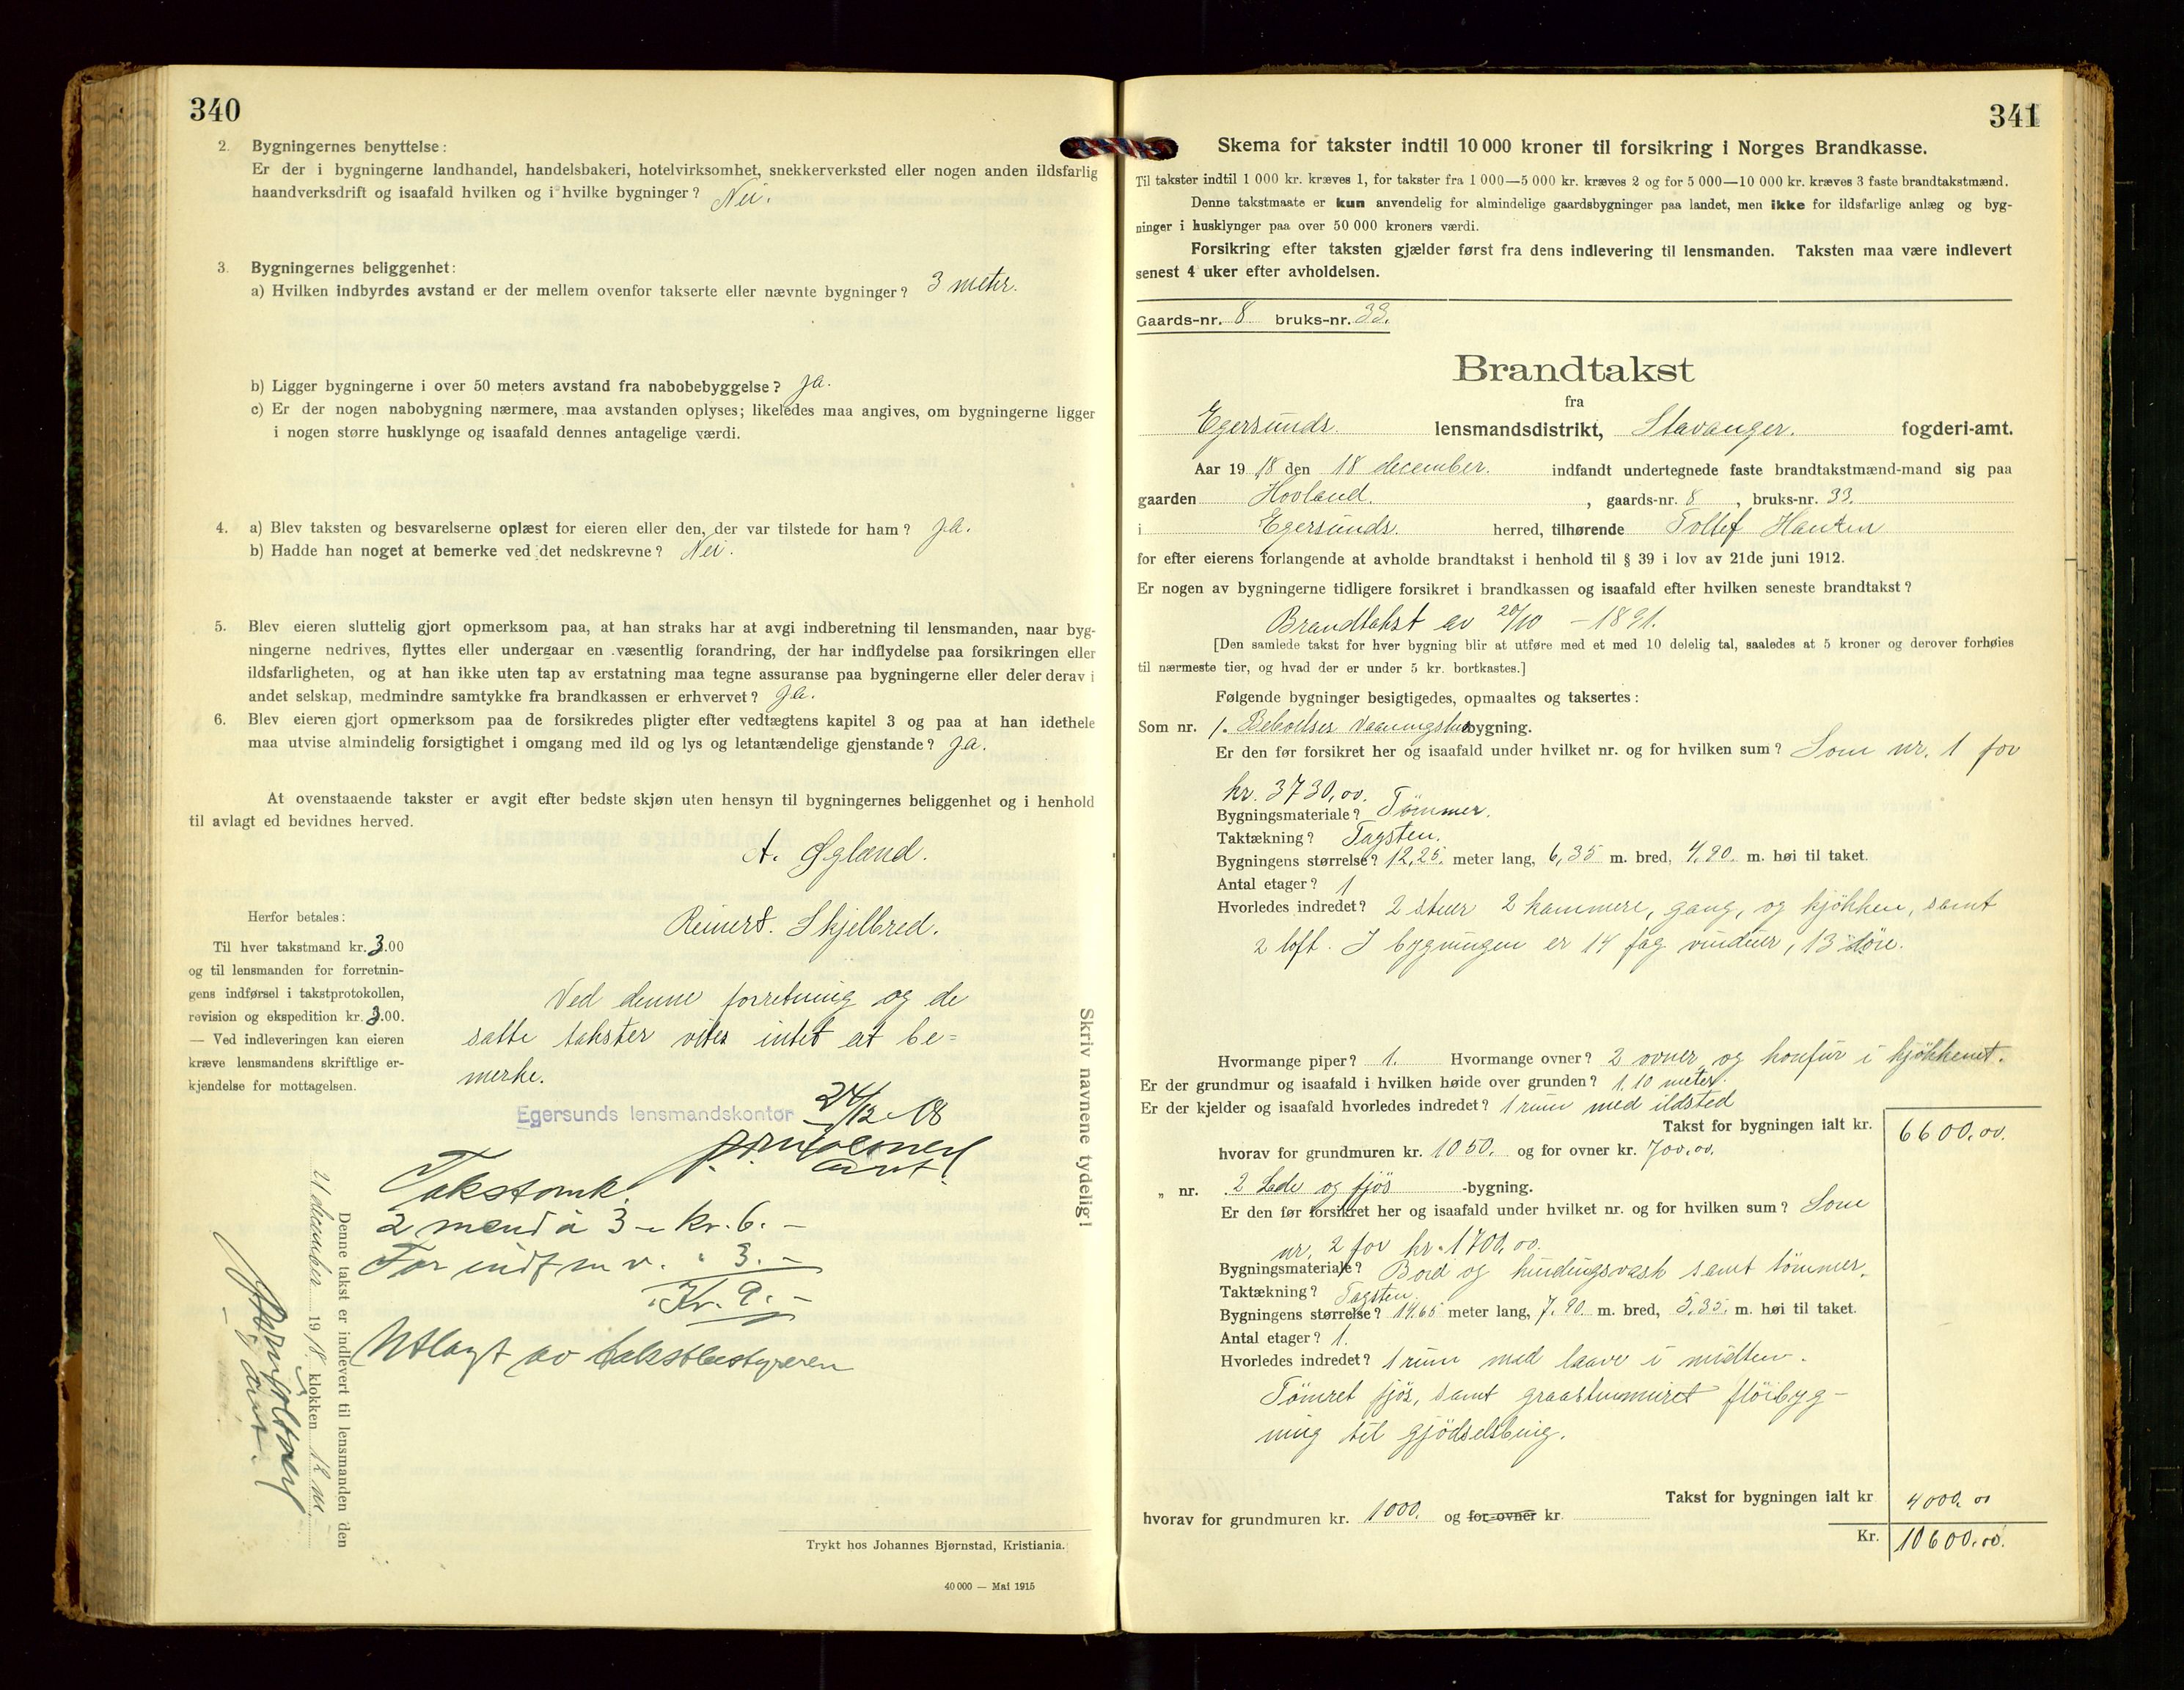 340
2. Bygningernes benyttelse:
Er der i bygningerne landhandel, handelsbakeri, hotelvirksomhet, snekkerverksted eller nogen anden ildsfarlig
haandverksdrift og isaafald hvilken og i hvilke bygninger? Nei.
3. Bygningernes beliggenhet:
a) Hvilken indbyrdes avstand er der mellem ovenfor takserte eller nævnte bygninger? 3 meter.
b) Ligger bygningerne i over 50 meters avstand fra nabobebyggelse? Ja.
c) Er der nogen nabobygning nærmere, maa avstanden oplyses; likeledes maa angives, om bygningerne ligger
i nogen større husklynge og isaafald dennes antagelige værdi.
4. a) Blev taksten og besvarelserne oplæst for eieren eller den, der var tilstede for ham? Ja.
b) Hadde han noget at bemerke ved det nedskrevne? Nei.
5. Blev eieren sluttelig gjort opmerksom paa, at han straks har at avgi indberetning til lensmanden, naar byg-
ningerne nedrives, flyttes eller undergaar en væsentlig forandring, der har indflydelse paa forsikringen eller
ildsfarligheten, og at han ikke uten tap av erstatning maa tegne assuranse paa bygningerne eller deler derav i
andet selskap, medmindre samtykke fra brandkassen er erhvervet? Ja.
6. Blev eieren gjort opmerksom paa de forsikredes pligter efter vedtægtens kapitel 3 og paa at han idethele
maa utvise almindelig forsigtighet i omgang med ild og lys og letantændelige gjenstande? Ja.
At ovenstaaende takster er avgit efter bedste skjøn uten hensyn til bygningernes beliggenhet og i henhold
til avlagt ed bevidnes herved.
A. Øgland.
Reinert. Skjelbred.
Herfor betales:
Til hver takstmand kr. 3.00
og til lensmanden for forretnin-
gens indførsel i takstprotokollen,
revision og ekspedition kr. 3.00.
— Ved indleveringen kan eieren
kræve lensmandens skriftlige er-
kjendelse for mottagelsen.
Ved denne forretning og de
satte takster vites intet at be=
merke.
Egersunds lensmandskontor 24/12-18
Takstomk.
2 mænd à 3 - Kr. 6. -
For indf m v. " 3. -
Kr. 9. -
Utlagt av takstbestyreren
Skriv navnene tydelig!
Denne takst er indlevert til lensmanden den
21 december 1918 klokken 12 m.
Trykt hos Johannes Bjørnstad, Kristiania.
40 000 — Mai 1915
341
Skema for takster indtil 10 000 kroner til forsikring i Norges Brandkasse.
Til takster indtil 1 000 kr. kræves 1, for takster fra 1 000—5 000 kr. kræves 2 og for 5 000—10 000 kr. kræves 3 faste brandtakstmænd.
Denne takstmaate er kun anvendelig for almindelige gaardsbygninger paa landet, men ikke for ildsfarlige anlæg og byg-
ninger i husklynger paa over 50 000 kroners værdi.
Forsikring efter taksten gjælder først fra dens indlevering til lensmanden. Taksten maa være indlevert
senest 4 uker efter avholdelsen.
Gaards-nr. 8 bruks-nr. 33.
Brandtakst
fra
Egersunds. lensmandsdistrikt, Stavanger. fogderi-amt.
Aar 1918 den 18 december. indfandt undertegnede faste brandtakstmænd-mand sig paa
gaarden Hovland. , gaards-nr. 8 , bruks-nr. 33.
i Egersunds. herred, tilhørende Tollef Hansen
for efter eierens forlangende at avholde brandtakst i henhold til § 39 i lov av 21de juni 1912.
Er nogen av bygningerne tidligere forsikret i brandkassen og isaafald efter hvilken seneste brandtakst?
Brandtakst av 20/10 - 1891.
[Den samlede takst for hver bygning blir at utføre med et med 10 delelig tal, saaledes at 5 kroner og derover forhøies
til nærmeste tier, og hvad der er under 5 kr. bortkastes.]
Følgende bygninger besigtigedes, opmaaltes og taksertes:
Som nr. 1. Beboelses vaaningshusbygning.
Er den før forsikret her og isaafald under hvilket nr. og for hvilken sum? Som nr. 1 for
kr. 3730,00.
Bygningsmateriale? Tømmer.
Taktækning? Tagsten.
Bygningens størrelse? 12,25. meter lang, 6,35 m. bred, 4,90. m. høi til taket.
Antal etager? 1
Hvorledes indredet? 2 stuer 2 kammere, gang, og kjøkken, samt
2 loft. I bygningen er 14 fag vinduer, 13 døre.
Hvormange piper? 1. Hvormange ovner? 2 ovner, og komfur i kjøkkenet.
Er der grundmur og isaafald i hvilken høide over grunden? 1,10 meter.
Er der kjelder og isaafald hvorledes indredet? 1 rum med ildsted
Takst for bygningen ialt kr. 6600,00.
hvorav for grundmuren kr. 1050. og for ovner kr. 700,00.
„ nr. 2 Lade og fjøs -bygning.
Er den før forsikret her og isaafald under hvilket nr. og for hvilken sum? Som
nr. 2 for kr. 1700,00.
Bygningsmateriale? Bord og bindingsverk samt tømmer.
Taktækning? Tagsten.
Bygningens størrelse? 14,65 meter lang, 7,90. m. bred, 5,35. m. høi til taket.
Antal etager? 1.
Hvorledes indredet? 1 rum med laave i midten.
Tømret fjøs, samt graastensmuret fløibyg-
ning til gjødselsbing.
Takst for bygningen ialt kr 4000,00
hvorav for grundmuren kr. 1000. og for ovner kr.
Kr. 10600,00.